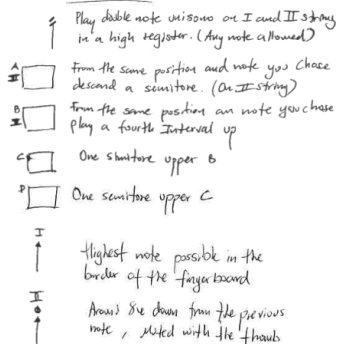 Play double note unisono on I and II string
in a high register. (Any note allowed)
A
II
From the same position and note you chose
descend a semitore. (On II string)
B
I
From the same position an note you chose
play a fourth Interval up
C
One semitore upper B
D
One semitore upper C
I
Highest note possible in the
border of the fingerboard
II
Around 8ve down from the previous
note, muted with the thumb